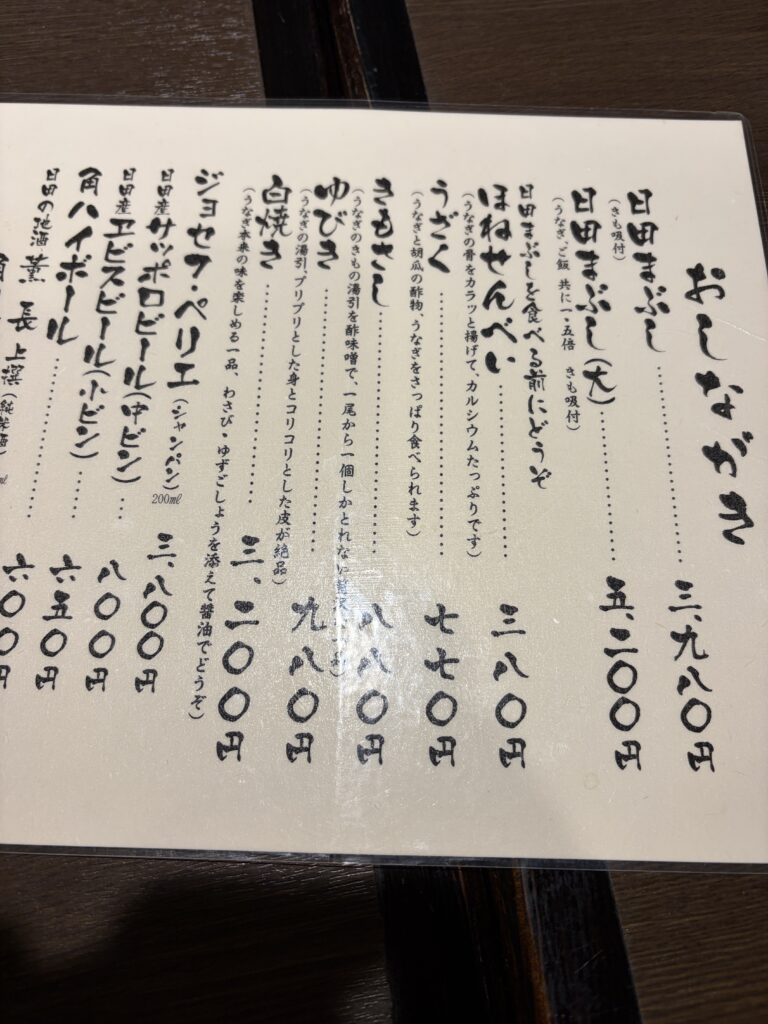 おしながき
日田まぶし………………三、九八〇円
(きも吸付)
日田まぶし(大)………………五、二〇〇円
(うなぎ、ご飯 共に一・五倍 きも吸付)
日田まぶしを食べる前にどうぞ
ほねせんべい………………三八〇円
(うなぎの骨をカラッと揚げて、カルシウムたっぷりです)
うざく………………七七〇円
(うなぎと胡瓜の酢物、うなぎをさっぱり食べられます)
きもさし………………八八〇円
(うなぎのきもの湯引を酢味噌で、一尾から一個しかとれない
ゆびき………………九八〇円
(うなぎの湯引、プリプリとした身とコリコリとした皮が絶品)
白焼き………………三、二〇〇円
(うなぎ本来の味を楽しめる一品、わさび・ゆずごしょうを添えて醤油でどうぞ)
ジョセフ・ペリエ(シャンパン)200㎖ 三、八〇〇円
日田産サッポロビール(中ビン)…八〇〇円
日田産ヱビスビール(小ビン)…六五〇円
角ハイボール………………六〇〇円
日田の地酒 薫長 上撰(純米酒)